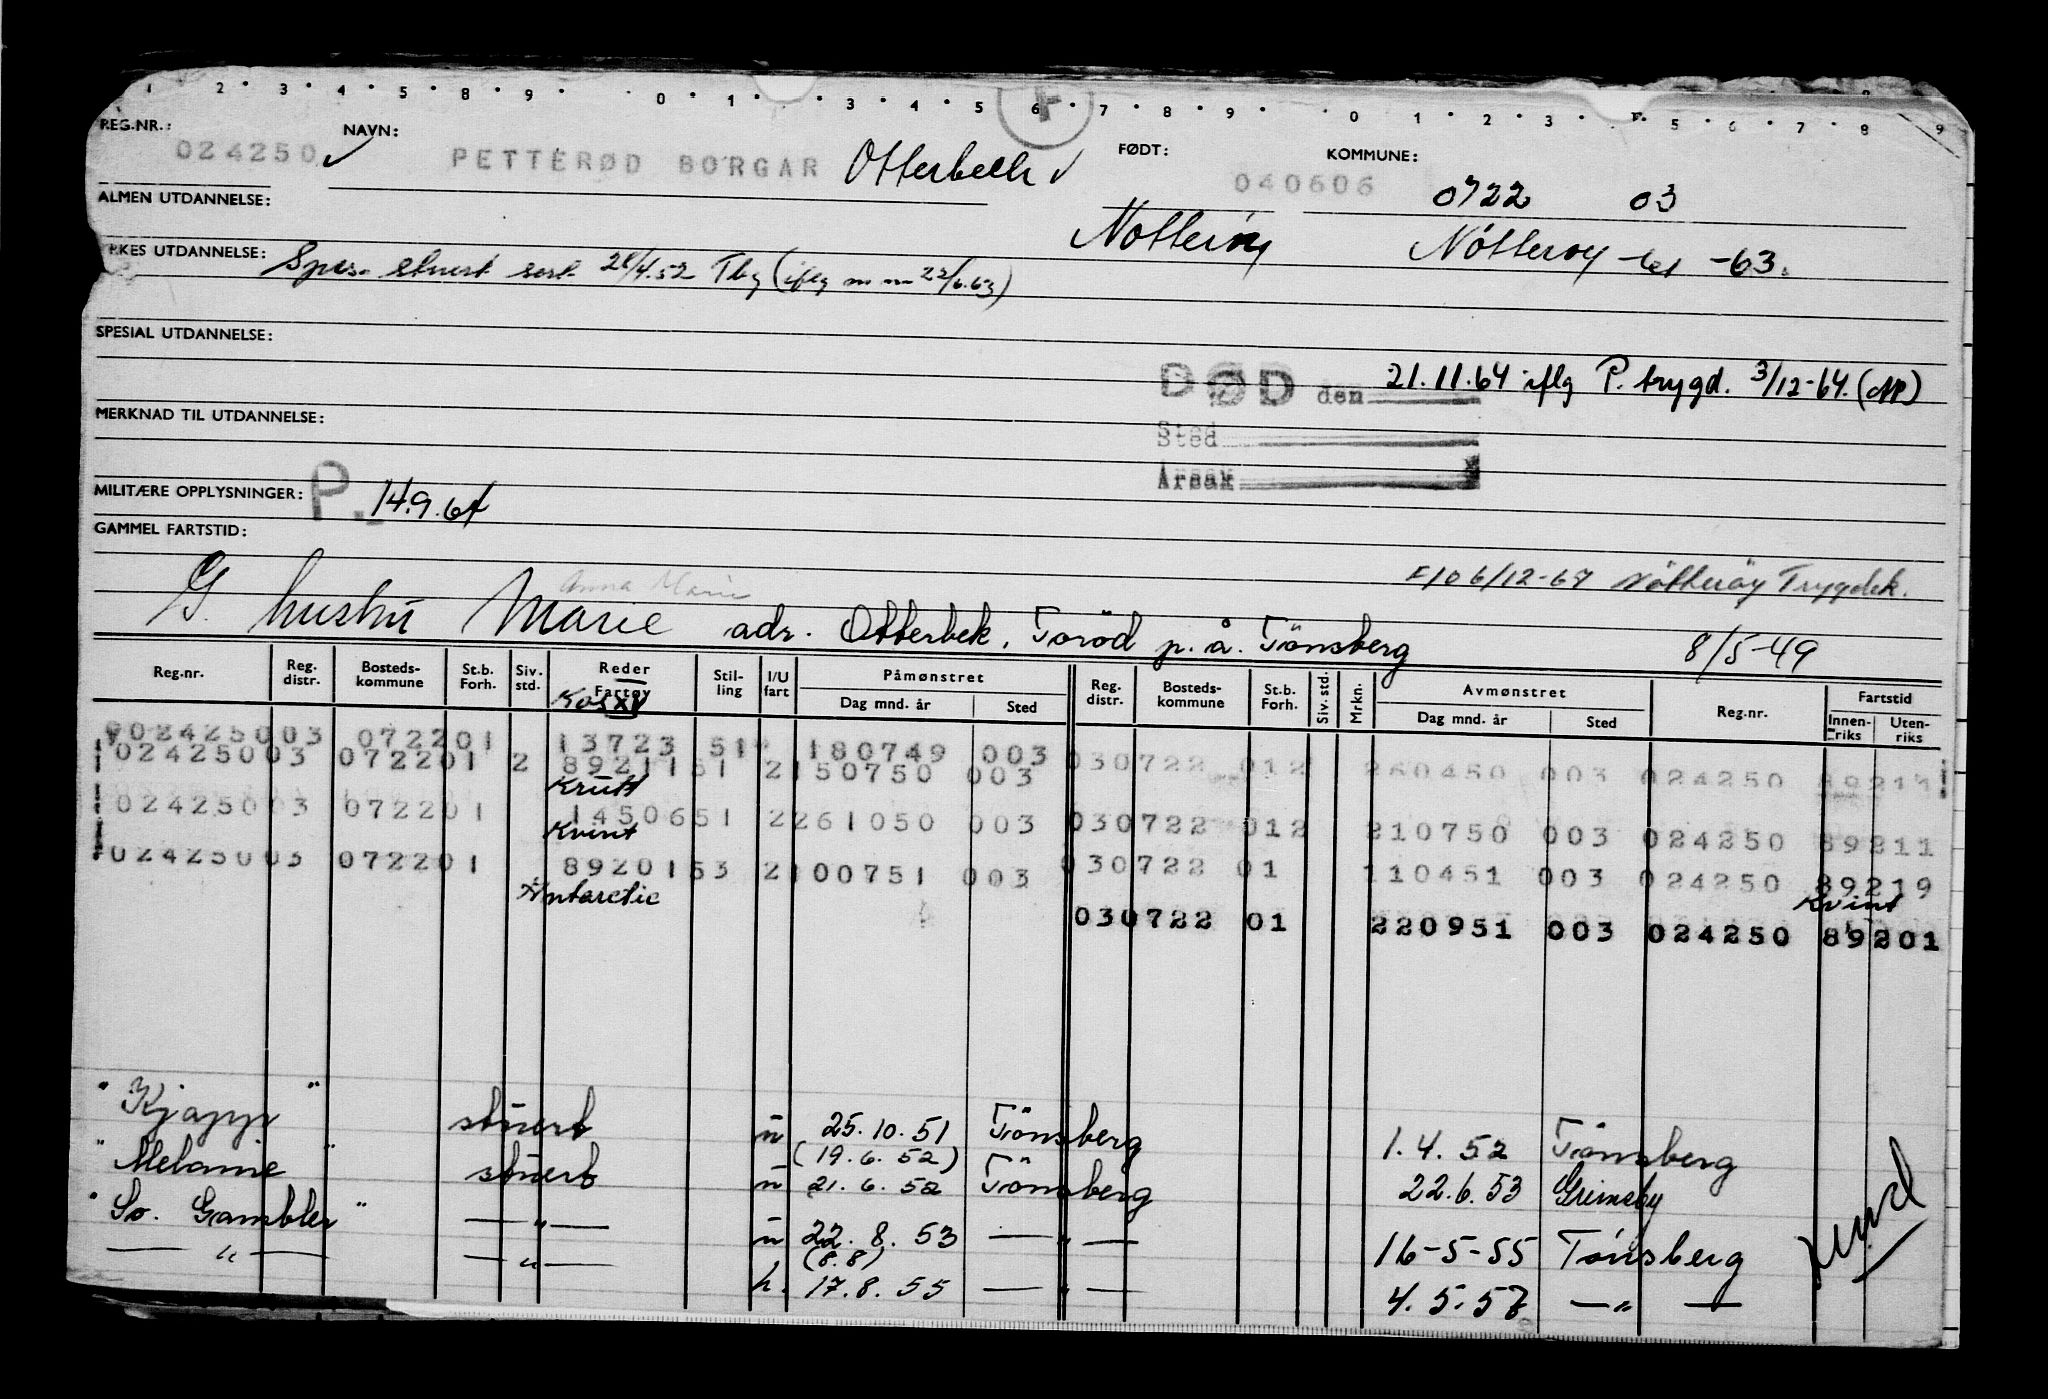 1 2 3 4 5 8 9 0 1 3 4 5 6 7 8 9 0 1 2 3 5 6 7 8 9
F
REG.NR.: NAVN: FØDT: KOMMUNE:
024250 ✓ PETTERØD BORGAR Otterbech ✓ 040606 0722 03
ALMEN UTDANNELSE: Nøtterøy Nøtterøy -63.
RKES UTDANNELSE: Spes. stuert sert 28/4.52 Tbg (iflg m m 22/6.63)
SPESIAL UTDANNELSE:
DØD den 21.11.64 iflg P. trygd. 3/12-64. (AP)
MERKNAD TIL UTDANNELSE:
Sted
Årsak
MILITÆRE OPPLYSNINGER: P. 14.9.64
GAMMEL FARTSTID:
Anna Marie 6/12-67 Nøtterøy Trygdek.
G. hustru Marie adr. Otterbek, Torød p.å. Tønsberg 8/5-49
Reg.nr. Reg. distr. Bosteds- kommune St.b. Forh. Siv. std. Reder Fartøy Stil- ling I/U fart Påmønstret Reg. distr. Bosteds- kommune St.b. Forh. Siv. std. Mrkn. Avmønstret Reg.nr. Fartstid
Dag mnd. år Sted Dag mnd. år Sted Innen- riks Uten- riks
Kos XV
02425003 072201 13723 51 180749 003
02425003 072201 2 89211 51 2 150750 003 030722 012 260450 003 024250 89211
Krutt
02425003 072201 14506 51 2 261050 003 030722 012 210750 003 024250 89211
Kvint
02425003 072201 89201 53 2 100751 003 030722 01 110451 003 024250 89219
Antarctic Kvint
030722 01 220951 003 024250 89201
" Kjapp " stuert u 25.10.51 Tönsberg 1.4.52 Tönsberg
(19.6.52)
" Melanie " stuert u 21.6.52 Tönsberg 22.6.53 Grimsby
" So. Gambler " — " — u 22.8.53 — " — 16-5-55 Tönsberg
(8.8)
— " — — " — h. 17.8.55 — " — 4.5.57 — " —